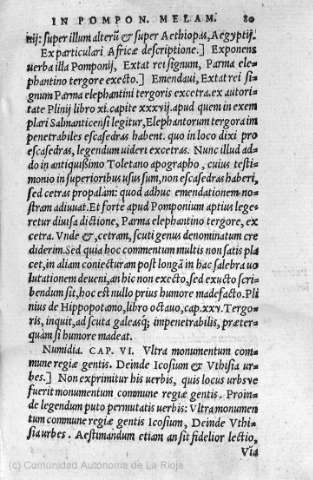 IN POMPON. MELAM. 80
nij: super illum alterũ & super Aethiopas, Aegyptij.
Ex particulari Africæ descriptione.] Exponens
uerba illa Pomponij, Extat rei signum, Parma ele-
phantino tergore execto.] Emendaui, Extat rei si-
gnum Parma elephantini tergoris excetra. ex autori-
tate Plinij libro xi. capite xxxvij. apud quem in exem
plari Salmanticensi legitur, Elephantorum tergora im
penetrabiles escasedras habent. quo in loco dixi pro
escasedras, legendum uideri excetras. Nunc illud ad-
do in antiquißimo Toletano apographo, cuius testi-
monio in superioribus usus sum, non escasedras haberi,
sed cetras propalàm: quod adhuc emendationem no-
stram adiuuat. Et forte apud Pomponium aptius lege-
retur diuisa dictione, Parma elephantino tergore, ex
cetra. Vnde &, cetram, scuti genus denominatum cre
diderim. Sed quia hoc commentum multis non satis pla
cet, in aliam coniecturam post longã in hac salebra uo
lutationem deueni, an hic non execto, sed exucto scri-
bendum sit, hoc est nullo prius humore madefacto. Pli
nius de Hippopotamo, libro octauo, cap. xxv. Tergo-
ris, inquit, ad scuta galeasq́; impenetrabilis, præter-
quàm si humore madeat.
Numidia. CAP. VI. Vltra monumentum com-
mune regiæ gentis. Deinde Icosium & Vthisia ur-
bes.] Non exprimitur his uerbis, quis locus urbsve
fuerit monumentum commune regiæ gentis. Proin-
de legendum puto permutatis uerbis: Vltra monumen-
tum commune regiæ gentis Icosium, Deinde Vthi-
sia urbes. Aestimandum etiam an sit fidelior lectio,
Via
(c) Comunidad Autonoma de La Rioja